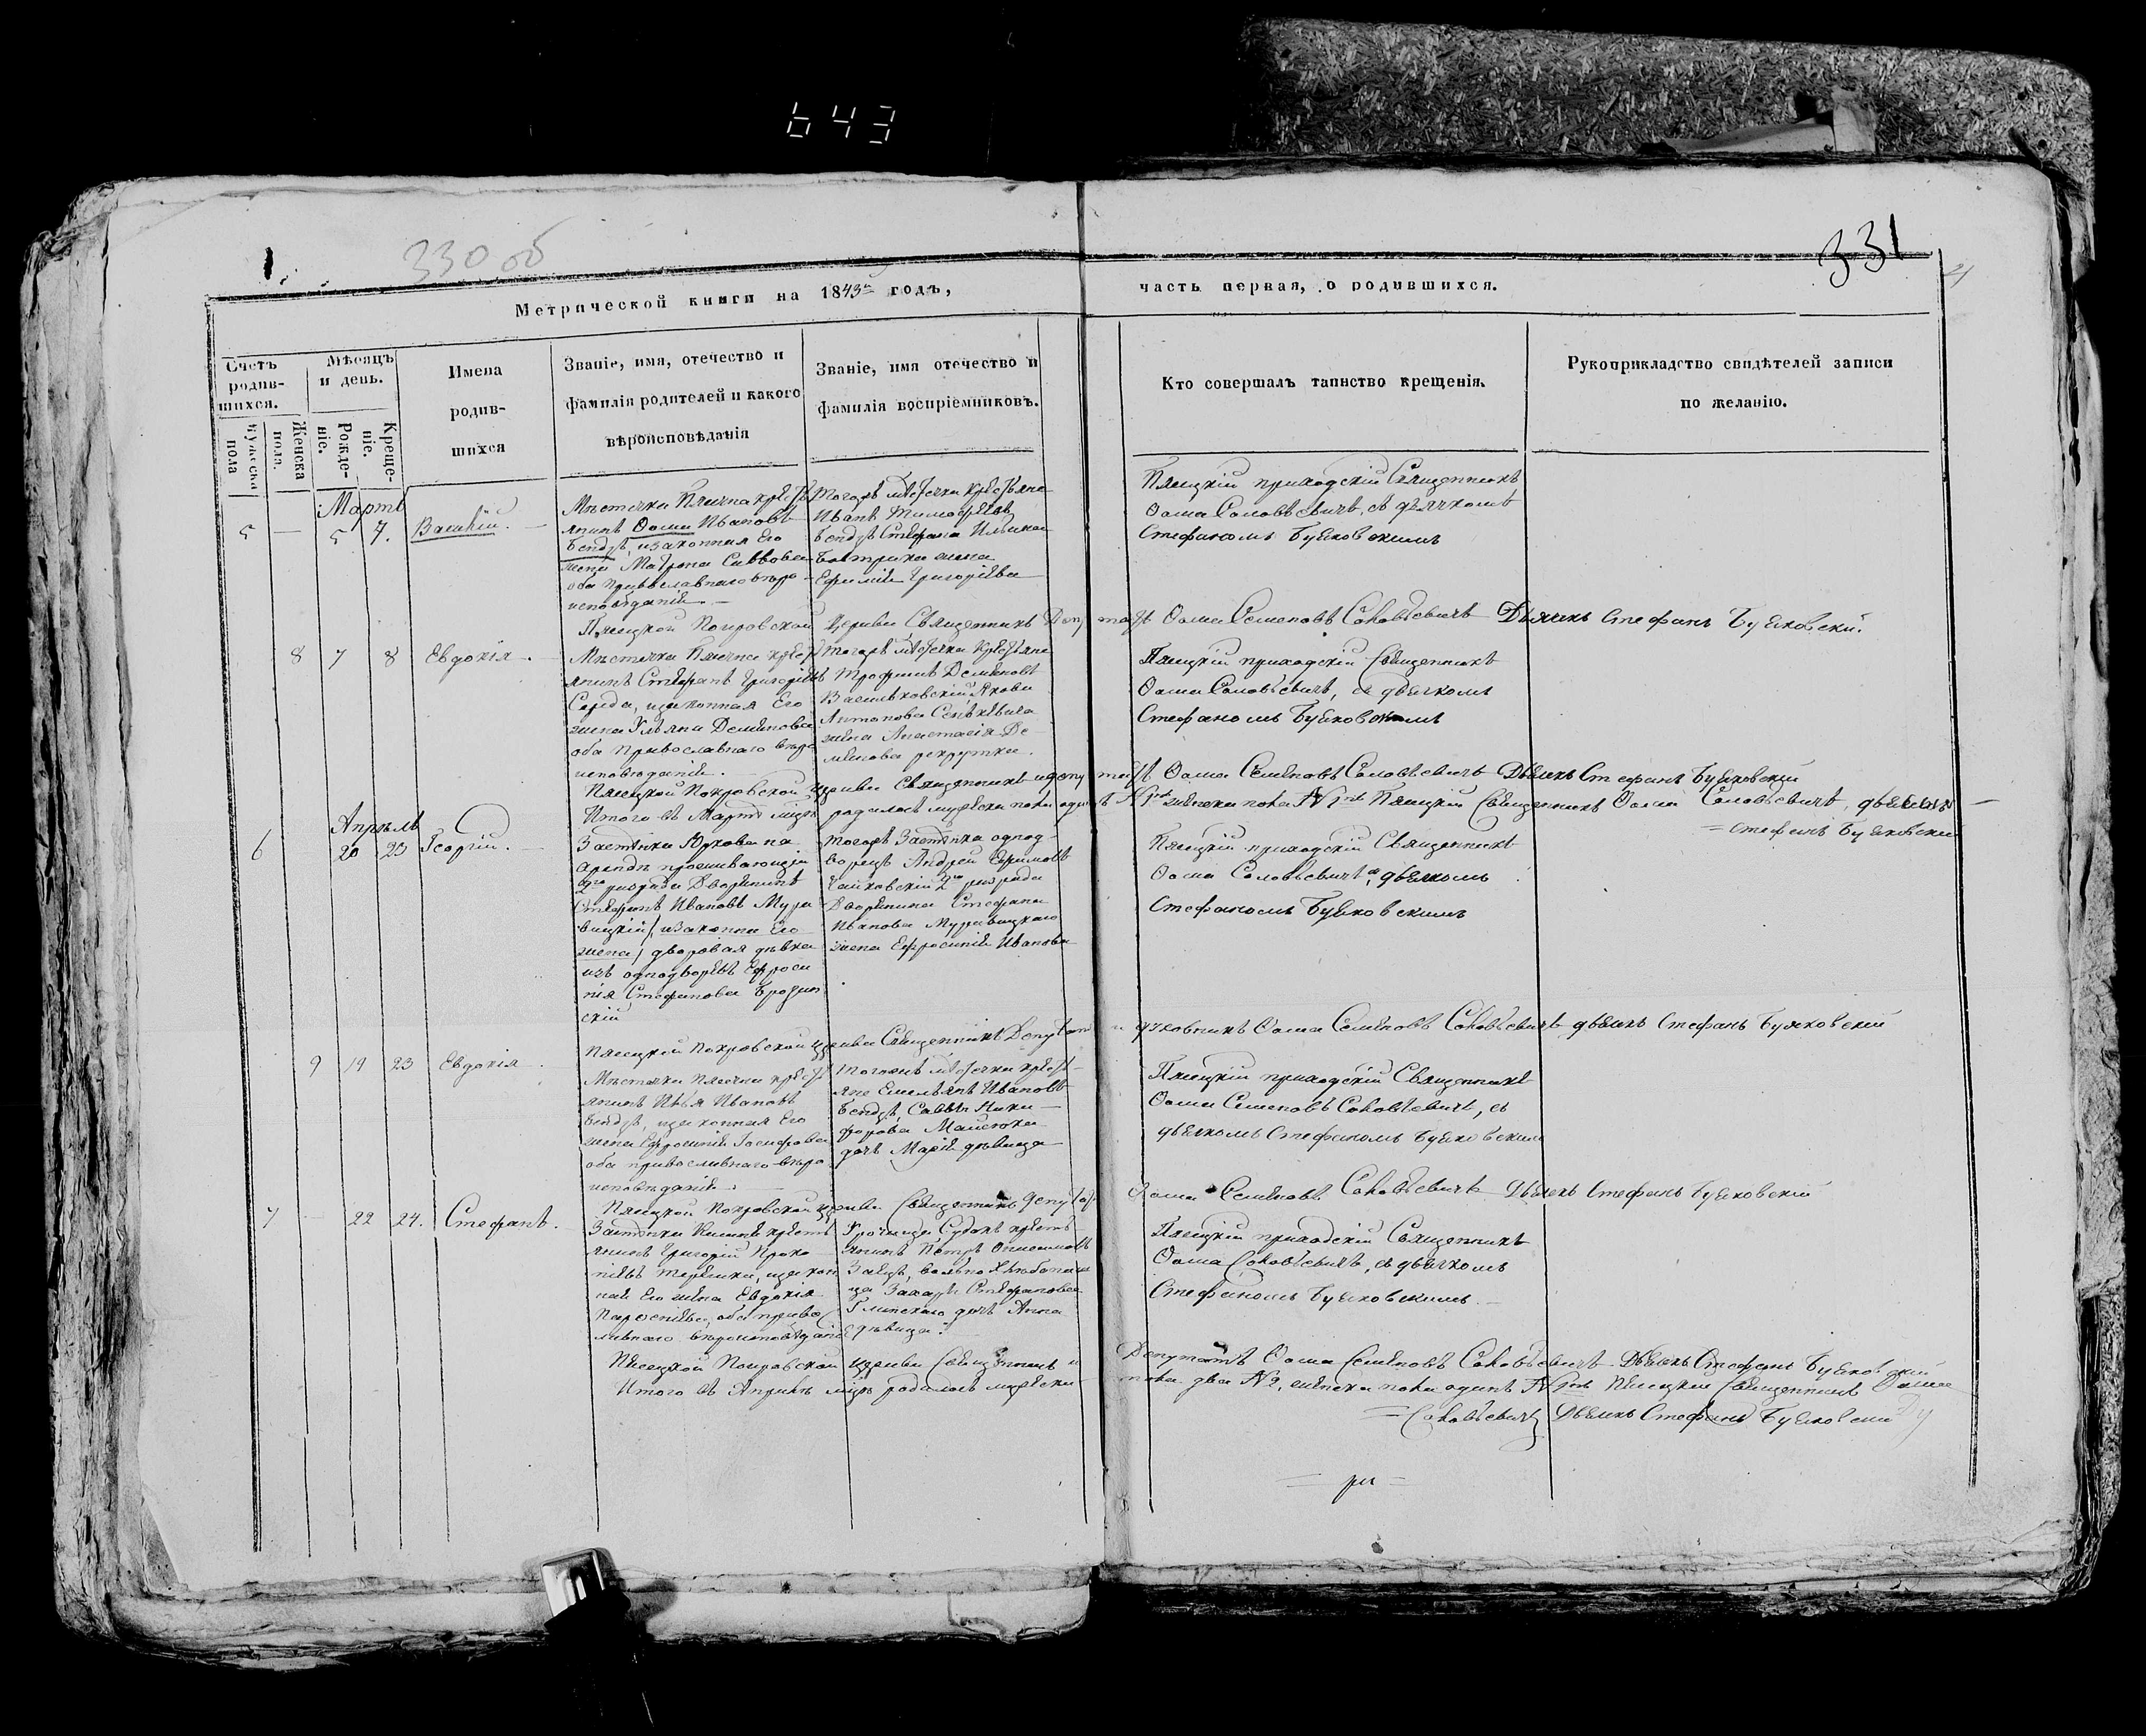 643
330 об
331
Метрической книги на 1843й годъ,
часть первая, о родившихся.
Счетъ родив-шихся.
Мужеска пола
Женска пола.
Мѣсяцъ и день.
Рожде-ніе.
Креще-ніе.
Имена
родив-
шихся
Званіе, имя, отечество и
фамилія родителей и какого
вѣроисповѣданія
Званіе, имя отечество и
фамилія воспріемниковъ.
Кто совершалъ таинство крещенія.
Рукоприкладство свидѣтелей записи
по желанію.
Мартъ
5 — 5 7. Василій.
Мѣстечка Пясечна крест
янинъ Ѳома Ивановъ
Бендзъ, изаконная Его
жена Матрона Саввова
оба православнаго вѣро
исповѣданія.
Тогожъ мѣстечка крестьяне
Иванъ Тимофѣевъ
Бендзъ Стефана
жена
Ефимія Григоріева
Пясецкій приходскій Священникъ
Ѳома Соловьевичъ, съ дьячкомъ
Стефаномъ Буяковскимъ
Пясецкой Покровской Церкви Священникъ Депутатъ Ѳома Семеновъ Соловьевичъ Дьячекъ Стефанъ Буяковскій.
8 7 8 Евдокія.
Мѣстечка Пясечна крест
янинъ Стефанъ Григоріевъ
Середа, изаконная Его
жена Ульяна Демянова
оба Православнаго вѣро
исповѣданія.
Тогожъ мѣстечка крестьяне
Трофимъ Демяновъ
Васильковскій Якова
Антонова
жена Анастасія Де
мянова рекрутка.
Пясецкій приходскій Священникъ
Ѳома Соловьевичъ, съ дьячкомъ
Стефаномъ Буяковскимъ
Пясецкой Покровской церкви Священникъ и депутатъ Ѳома Семяновъ Соловьевичъ Дьячекъ Стефанъ Буяковскій
Итого въ Мартѣ мцѣ родилось мужеска пола одинъ №1 женска пола №1 Пясецкій Священникъ Ѳома Соловьевичъ, дьячекъ
= Стефанъ Буяковскій
Апрѣль
6 20 23 Георгій.
Застѣнка Юховна на
арендѣ проживающій
2го разряда Дворянинъ
Стефанъ Ивановъ Мура
вицкій, изаконная Его
жена, дворовая дѣвка
изъ однодворцевъ Ефроси
нія Стефанова
скій
тогожъ Застѣнка однод
ворецъ Андрей Ефимовъ
Чайковскій 2го разряда
Дворянина Стефана
Иванова Муравицкаго
жена Ефросинія Иванова
Пясецкій приходскій Священникъ
Ѳома Соловьевичъ съ дьячкомъ
Стефаномъ Буяковскимъ
Пясецкой Покровской церкви Священникъ Депутатъ и духовникъ Ѳома Семяновъ Соловьевичъ дьячекъ Стефанъ Буяковскій
9 19 23 Евдокія
Мѣстечка Пясечна крест
янинъ Илья Ивановъ
Бендзъ, изаконная Его
жена Евдокія Іосифова
оба православнаго вѣро
исповѣданія
Тогожъ мѣстечка крест
яне Емельянъ Ивановъ
Бендзъ, Саввы Ники
форова
дочь Марія дѣвица
Пясецкій приходскій Священникъ
Ѳома Семеновъ Соловьевичъ, съ
дьячкомъ Стефаномъ Буяковскимъ
Пясецкой Покровской церкви Священникъ Депутатъ Ѳома Семяновъ Соловьевичъ Дьячекъ Стефанъ Буяковскій
7 — 22 24. Стефанъ.
Застѣнка крестъ
янинъ Григорій Проко
піевъ изакон
ная Его жена Евдокія
оба правос
лавнаго вѣроисповѣданія
Урочища крестъ
янинъ Петръ
Заяцъ, вольно хлѣбопаш
ца Захарія Стефанова
Глинскаго дочь Анна
дѣвица.
Пясецкій приходскій Священникъ
Ѳома Соловьевичъ, съ дьячкомъ
Стефаномъ Буяковскимъ.
Пясецкой Покровской церкви Священникъ и Депутатъ Ѳома Семяновъ Соловьевичъ Дьячекъ Стефанъ Буяковскій
Итого въ Апрѣлѣ мцѣ родилось мужеска пола два №2, женска пола одинъ №1 Пясецкій Священникъ Ѳома
= Соловьевичъ Дьячекъ Стефанъ Буяковскій